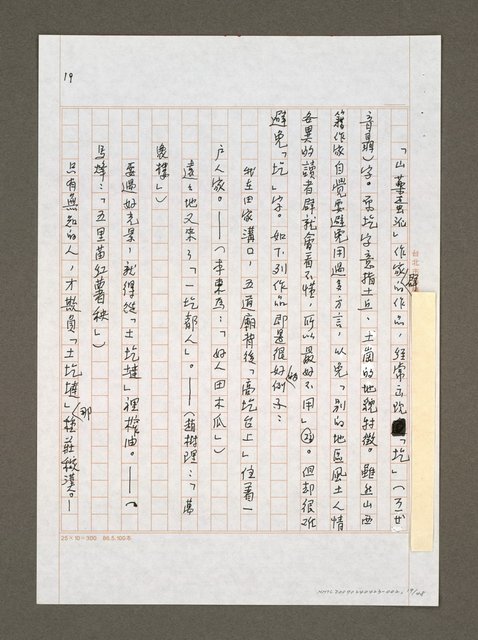 19
「山藥蛋派」作家群的作品,經常出現「圪」(ㄍㄜ
音ㄍㄜ)字。圪字意指土丘、土崗的地貌特徵。雖然山西
籍作家自覺要避免用過多方言,以免「別的地區風土人情
各異的讀者群就會看不懂,所以最好不用」㉓。但却很难
避免「圪」字。如下列作品即是很好的例子:
我在田家溝口,五道廟背後「高圪台上」住着一
户人家。——(李束為:「好人田木瓜」)
遠遠地又來了「一圪都人」。——(趙樹理:「萬
象樓」)
要過好光景,就得從「土圪墶」裡榨油。——(
馬烽:「五里苗紅薯秧」)
只有無知的人,才欺負「土圪墶」那樣莊稼漢。—
25×10=300
台北市
19/48